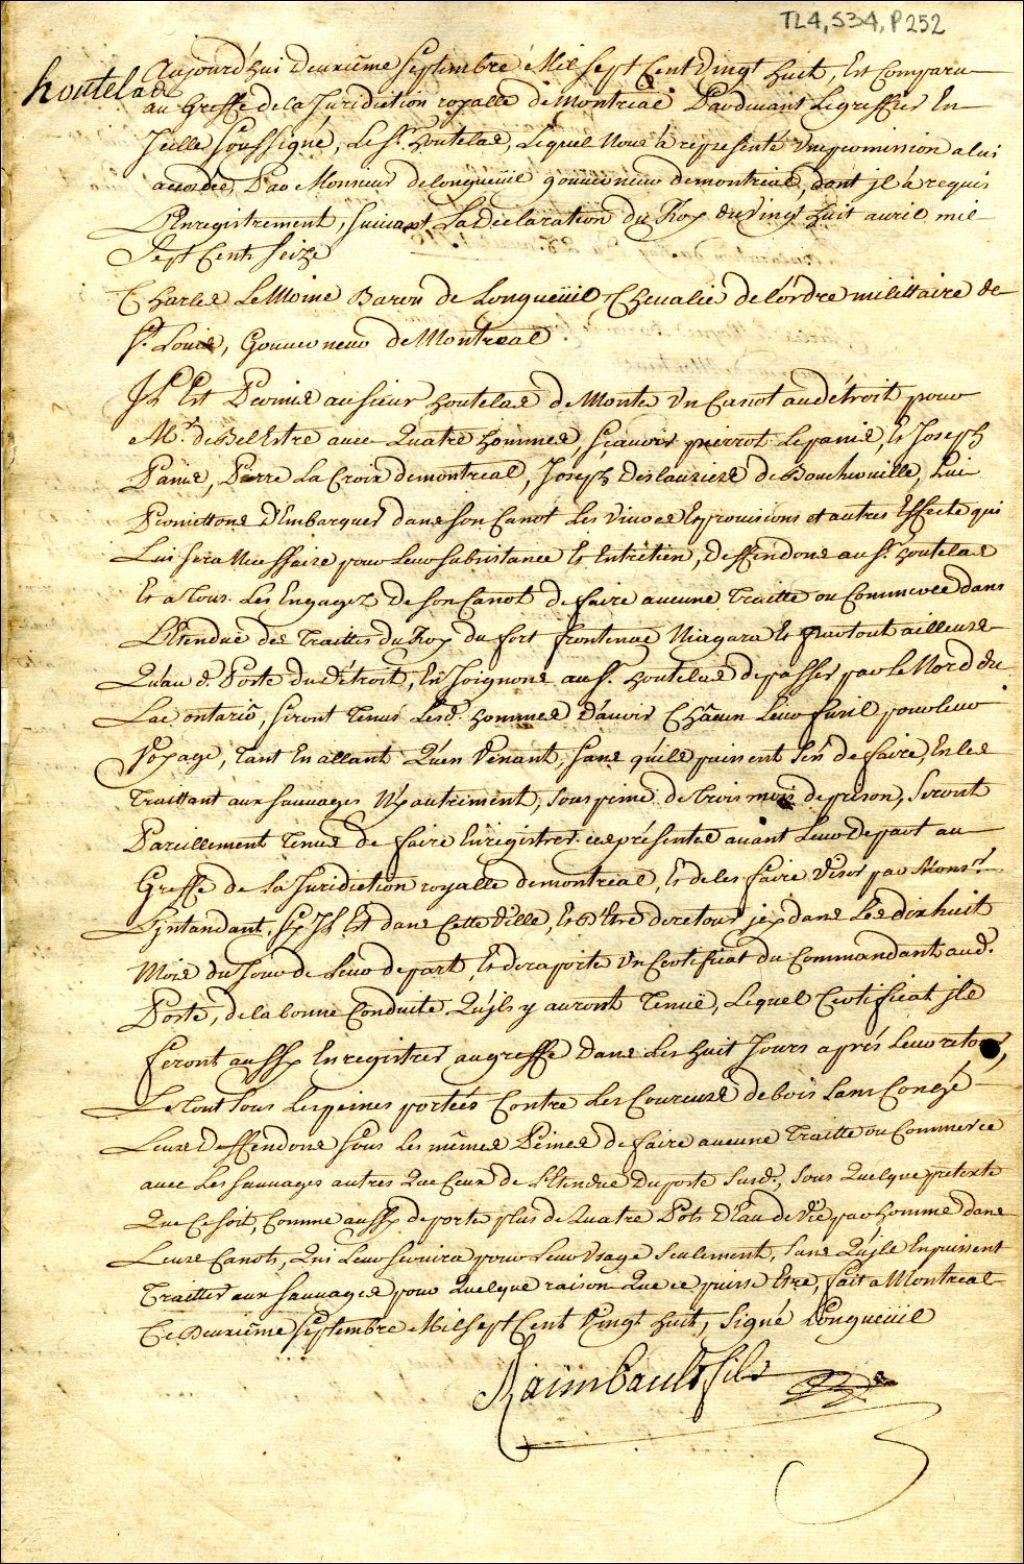 TL4, S34, P252
houtelas
Aujourd'hui Deuxiême Septembre Mil Sept Cent Vingt huit, Est Comparu
au Greffe de la Juridiction royalle de Montreal Pardevant Le greffier En
Jcelle Soussigné, Le Sr. houtelas, Lequel Nous à représenté Une permission a lui
accordée, Par Monsieur de longueüil gouverneur de montreal, dont jl à requis
L'Enregistrement, Suivant La Declaration du Roy du Vingt huit avril mil
Sept Cent Seize
Charles LeMoine Baron de Longueüil, Chevalie de l'ordre milittaire de
St. Louis, Gouverneur de Montreal
Jl Est Permis au Sieur houtelas de Monter Un Canot au détroit pour
Mr. de Bel Estre avec Quatre hommes, Sçavoir pierrot Le panis, Et Joseph
Panis, Pierre La Croix de montreal, Joseph Deslauriers de Boucherville, Lui
Promettons D'Embarquer dans Son Canot Les Vivres Et provisions et autres Effects qui
Lui Sera Necessaire pour Leur Subsistance Et Entretien, Deffendons au Sr. houtelas
Et a Tous Les Engagez De Son Canot de faire aucune Traitte ou Commerce dans
L'Etendue des Traittes du Roy du fort frontenac Niagara Et partout ailleurs
Qu'au d. Poste du Détroit, En Joignons au Sr. houtelas de passer par Le Nord du
Lac ontario, Seront Tenus Lesd. hommes D'avoir Châcun Leur fusil pour leur
Voyage, Tant En allant Qu'en Venant, Sans qu'ils puissent S'en defaire, En les
Traittant aux Sauvages Ny autrement, Sous peine de trois mois de prison, Seront
Pareillement Tenus de faire Enregistrer ces présentes avant Leur depart au
Greffe de La Juridiction royalle de montreal, Et de les faire Viser par Monsr.
L'jntandant, Sy Jl Est dans Cette Ville, Et d'Etre de retour jcy dans Les dix huit
Mois du Jour de Leur depart, Et de raporter Un Certificat du Commandant aud.
Poste, de la bonne Conduite Qu'jls y auront Tenuë, Lequel Certificat jls
feront aussy Enregistrer au greffe Dans Les huit Jours aprés Leur retour,
Le Tout Sous Les peines portées Contre Les Coureurs de bois Sans Congé
Leurs Deffendons Sous Les mêmes Peines de faire aucune Traitte ou Commerce
avec Les Sauvages autres Que Ceux de L'Etendue Du poste Susd., Sous Quelque pretexte
Que Ce Soit, Comme aussy de porter plus de Quatre Pots D'Eau de Vie par homme dans
Leurs Canots, Qui Leur Servira pour Leur Usage Seulement, Sans Qu'jls En puissent
Traitter aux Sauvages pour Quelque raison Que ce puisse Etre, fait a Montreal
Ce Deuxiême Septembre Mil Sept Cent Vingt huit, Signé Longueüil
Raimbault fils